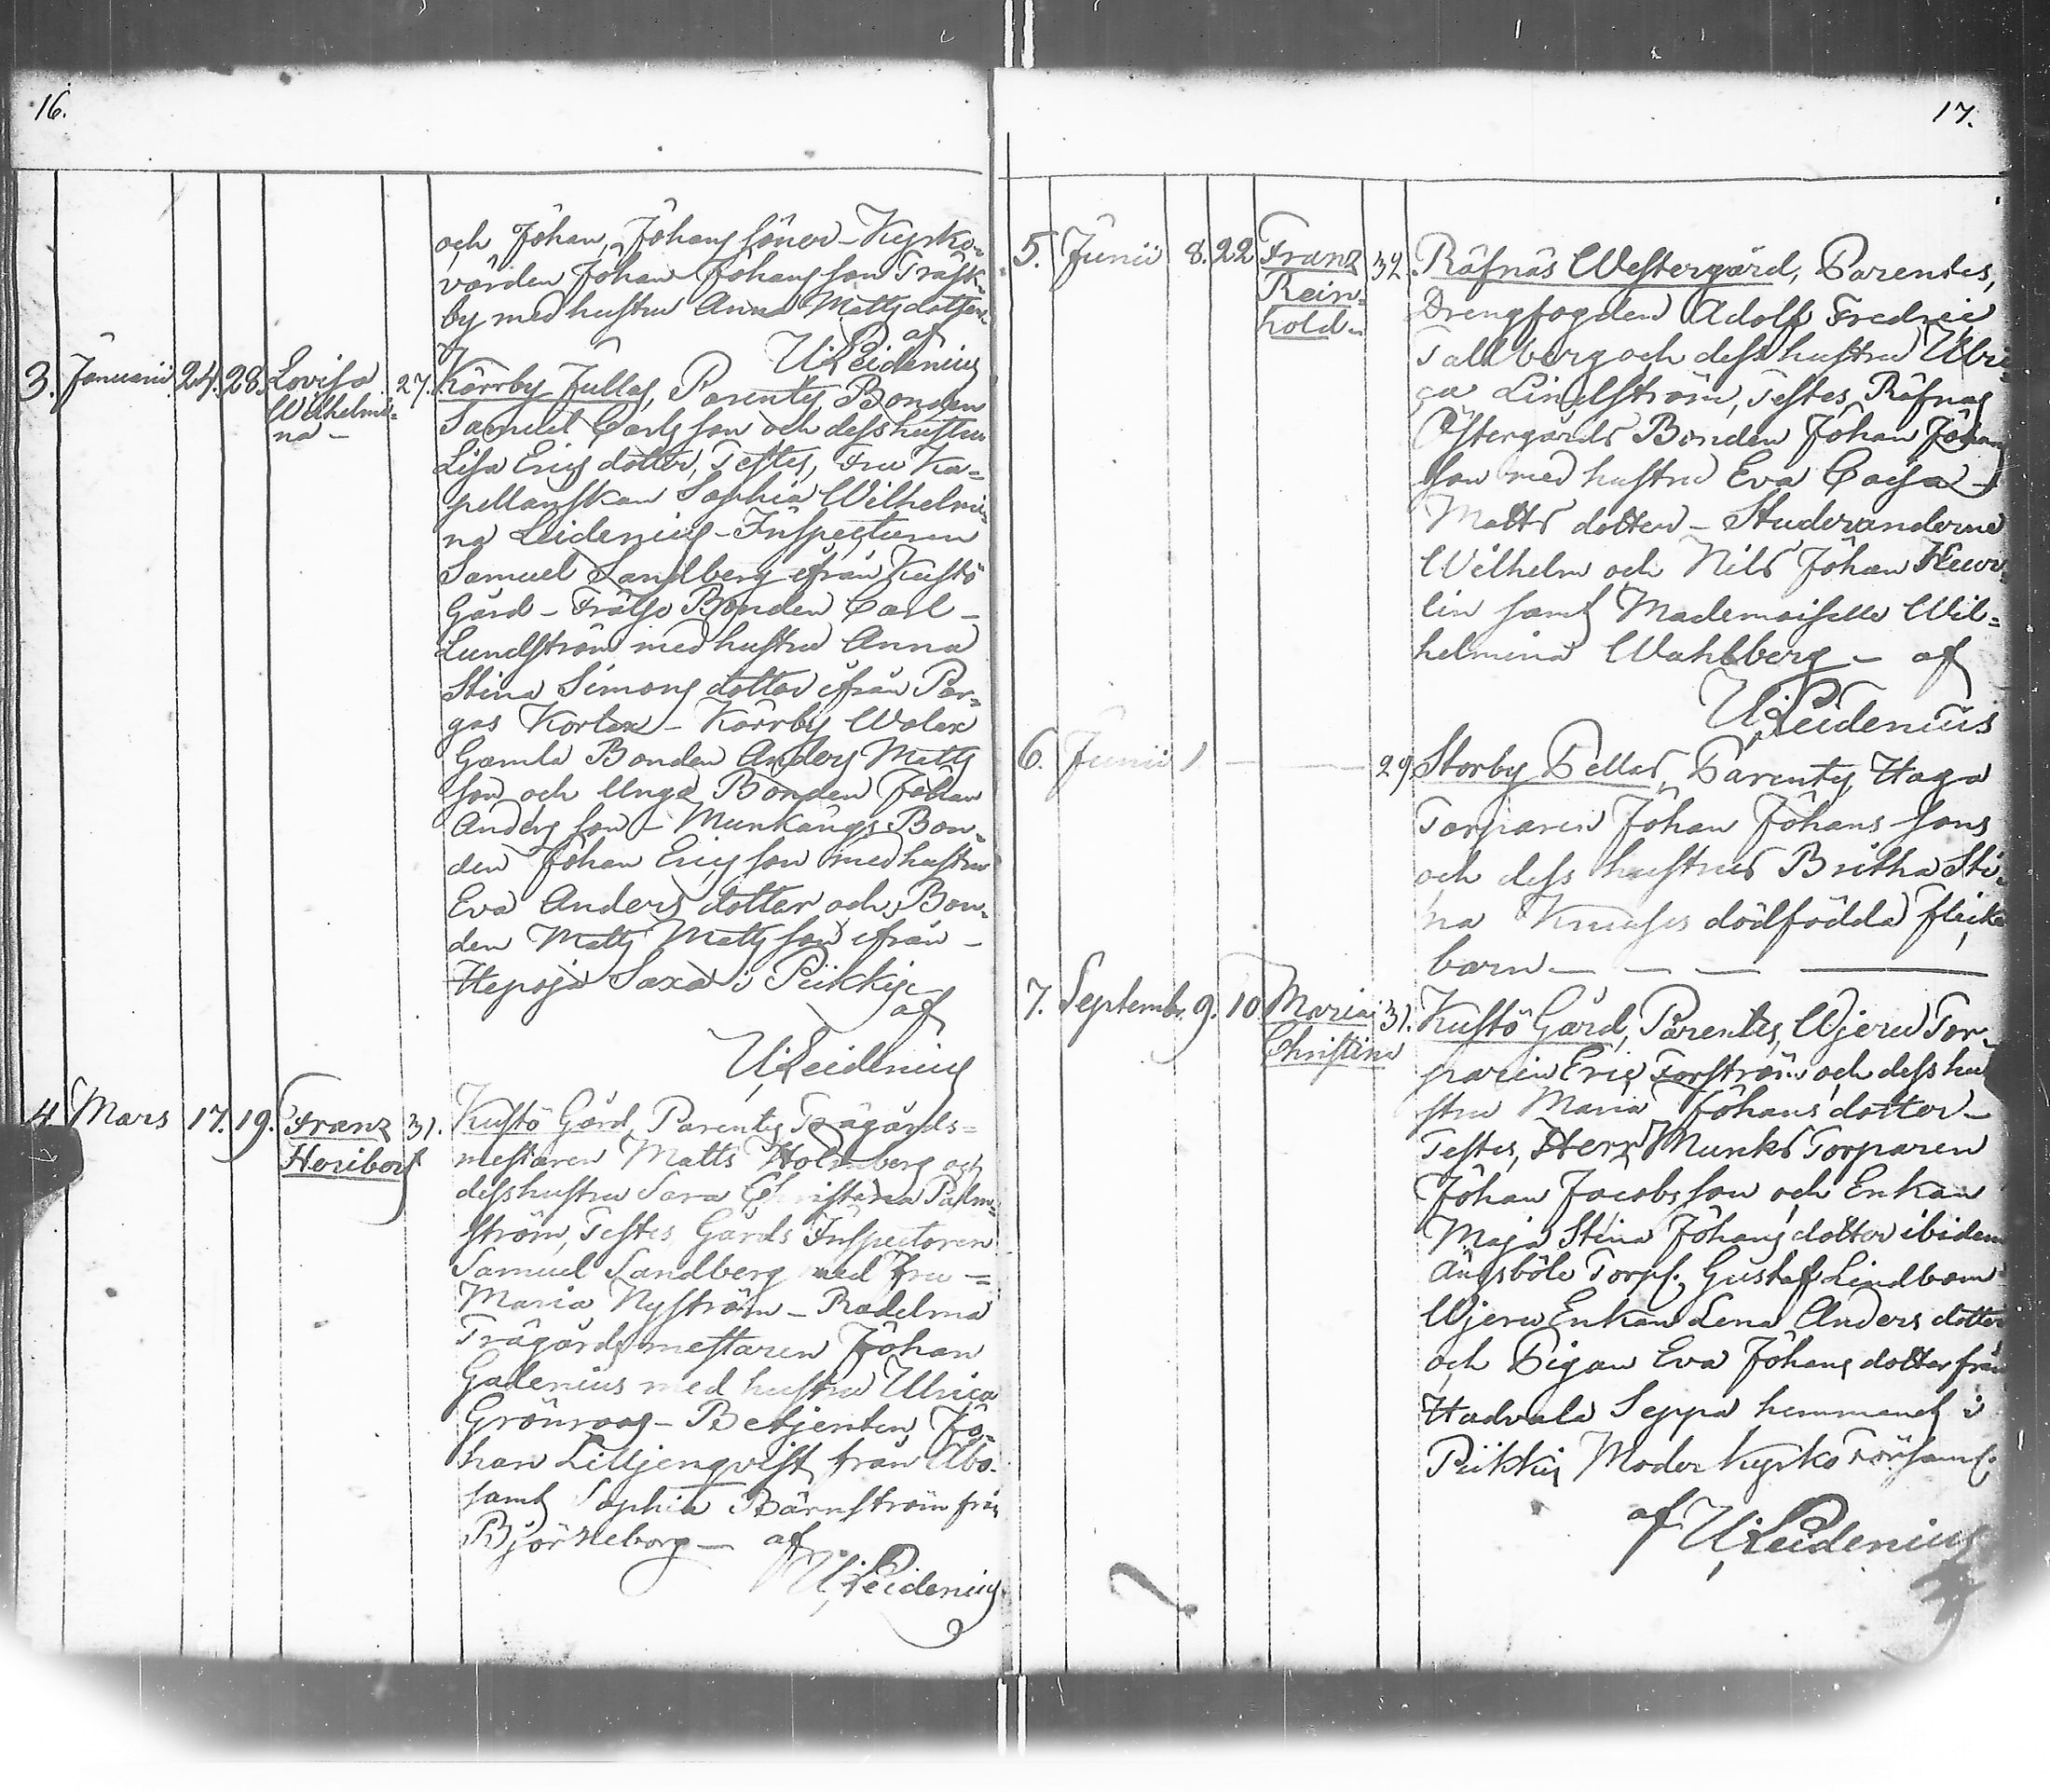 16.
och Johan Johans söner - Kyrko-
värden Johan Johans son Träsk-
by med hustru Anna Matts dotter
af
U. Leidenius
3. Januarii 24. 28. Lovisa Wilhelmi-
na - 27. Kärrby Jullas, Parentes Bonden
Samuel Carls son och dess hustru
Lisa Erics dotter, Testes, Fru Ka-
pellanskan Sophia Wilhelmi-
na Leidenius - Inspectoren
Samuel Sandberg ifrån Kustö
Gård - Frälse Bonden Carl -
Lundström med hustru Anna
Stina Simons dotter ifrån Par-
gas Kortax - Kärrby Wolax
Gamla Bonden Anders Matts
son och Unga Bonden Johan
Anders son - Munkängs Bon-
den Johan Erics son med hustru
Eva Anders dotter och Bon-
den Matts Matts son ifrån -
Hepoja Saxa i Piikkije
af
U. Leidenius
4. Mars 17. 19. Franz
Heribert 31. Kustö Gård, Parentes Trägårds-
mestaren Matts Holmberg och
dess hustru Sara Christina Palm-
ström, Testes Gårds Inspectoren
Samuel Sandberg med Fru =
Maria Nyström - Radelma
Trägårds mestaren Johan
Galenius med hustru Ulrica
Grönroos - Betjenten Jo-
han Liljenqvist från Åbo.
samt Sophia Bärnström från
Björneborg - af
U. Leidenius
17.
5. Junii 8. 22 Franz
Rein-
hold - 32. Räfnäs Westergård, Parentes,
Drengfogden Adolf Fredric
Tallberg och dess hustru Ulri-
ca Lindström, Testes, Räfnäs
Östergårds Bonden Johan Johans
son med hustru Eva Caisa -
Matts dotter - Studeranderne
Wilhelm och Nils Johan
lin samt Mademoiselle Wil-
helmina Wahlberg - af
U. Leidenius
6. Junii 1 - - 29. Storby Pellas, Parentes, Haga
Torparen Johan Johans sons
och dess hustrus Britha Sti-
na Knuses dödfödda flicke
barn -
7. Septembr. 9. 10 Maria
Christina 31. Kustö Gård, Parentes, Wjeru Tor-
paren Eric Forström och dess hu
stru Maria Johans dotter -
Testes, Herr Munks Torparen
Johan Jacobs son och Enkan
Maja Stina Johans dotter ibidem
Ängsböle Torp. Gustaf Lindbom
Wjeru Enkan Lena Anders dotter
och Pigan Eva Johans dotter från
Hadvala Seppä hemmanet i
Piikkije Moder kyrko Församl.
af U. Leidenius